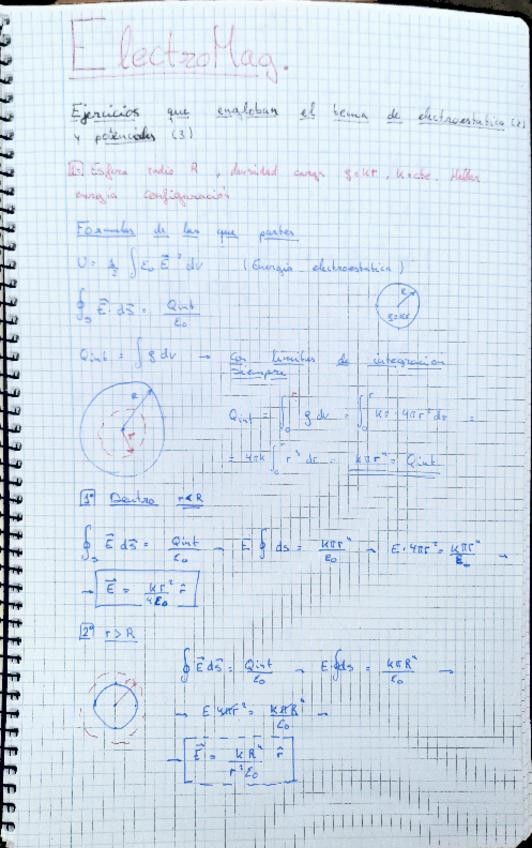 ElectroMag.
Ejercicios que engloban el tema de electroestatica (2)
y potenciales (3)
1º Esfera radio R, densidad carga ρ=kr, k=cte. Hallar
energia configuración
Formulas de las que partes
U = 1/2 ∫ ε₀ E⃗² dv (Energia electroestatica)
∮s E⃗ · dS⃗ = Qint/ε₀
R
ρ=kr
Qint = ∫ ρ dv → Con limites de integracion
Siempre
R
r
Qint = ∫₀^r ρ dv = ∫₀^r kr · 4πr² dr =
= 4πk ∫₀^r r³ dr = kπr⁴ = Qint
1º Dentro r<R
∮s E⃗ dS⃗ = Qint/ε₀ → E ∮ ds = kπr⁴/ε₀ → E · 4πr² = kπr⁴/ε₀ →
→ E⃗ = kr²/4ε₀ r̂
2º r > R
∮ E⃗ dS⃗ = Qint/ε₀ → E · ∮ds = kπR⁴/ε₀ →
→ E 4πr² = kπR⁴/ε₀ →
→ E⃗ = kR⁴/r²ε₀ r̂